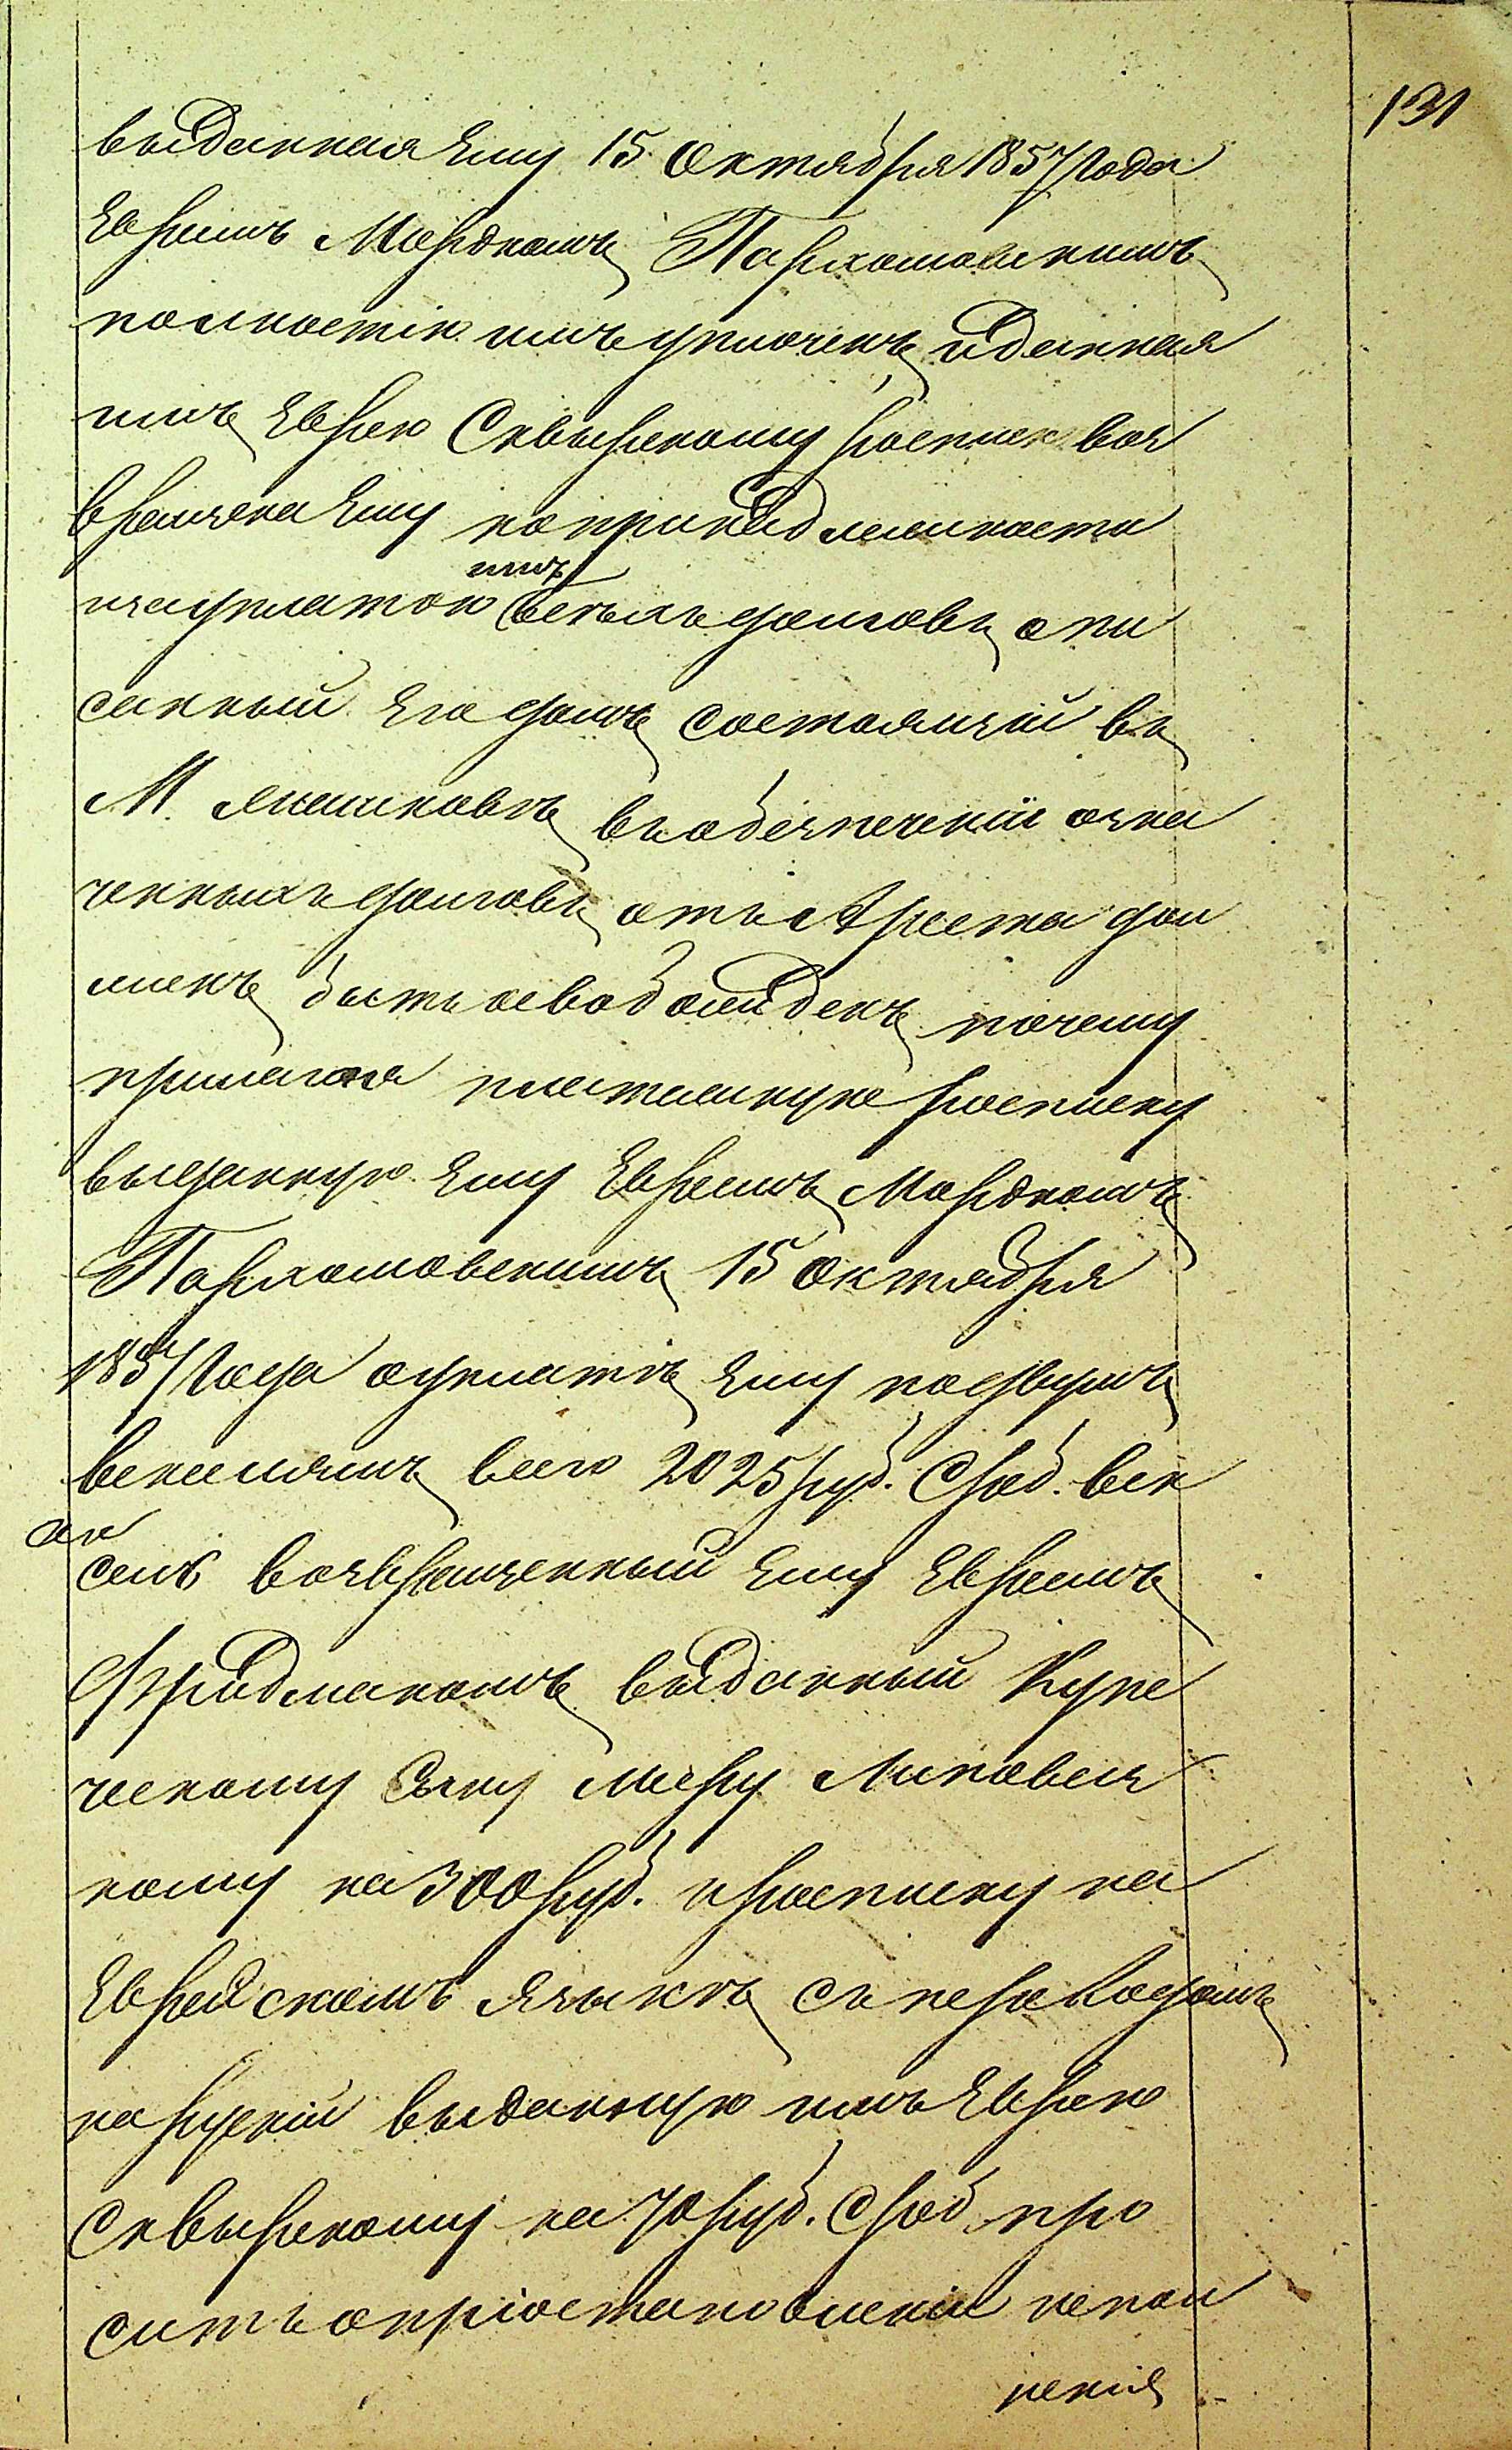 131
выданная ему 15 Октября 1857 года
Евреемъ Мордкомъ Пархомовскимъ
полностію имъ уплоченъ, и данная
имъ Еврею Сквырскому росписк воз
вращена ему по принадлежности
имъ
и за уплатою всехъ долговъ опи
санный его домъ состоящій въ
М. Ясниковъ въ обезпеченіи озна
ченныхъ долговъ отъ Ареста дол
женъ быть освобожденъ почему
прилагая платежную росписку
выданную ему Евреемъ Мордкомъ
Пархомовскимъ 15 Октября
1857 года о уплатѣ ему по двумъ
векселямъ всего 2025 руб. Среб. век
сель возвращенный ему Евреемъ
Фридманомъ выданный Купе
ческому Сыну Меру Липовец
кому на 300 руб. и росписку на
Еврейскомъ языкѣ съ переводомъ
на рускій выданную имъ Еврею
Сквырскому на 70 руб. Среб. про
ситъ о пріостановленіи испол
ненія